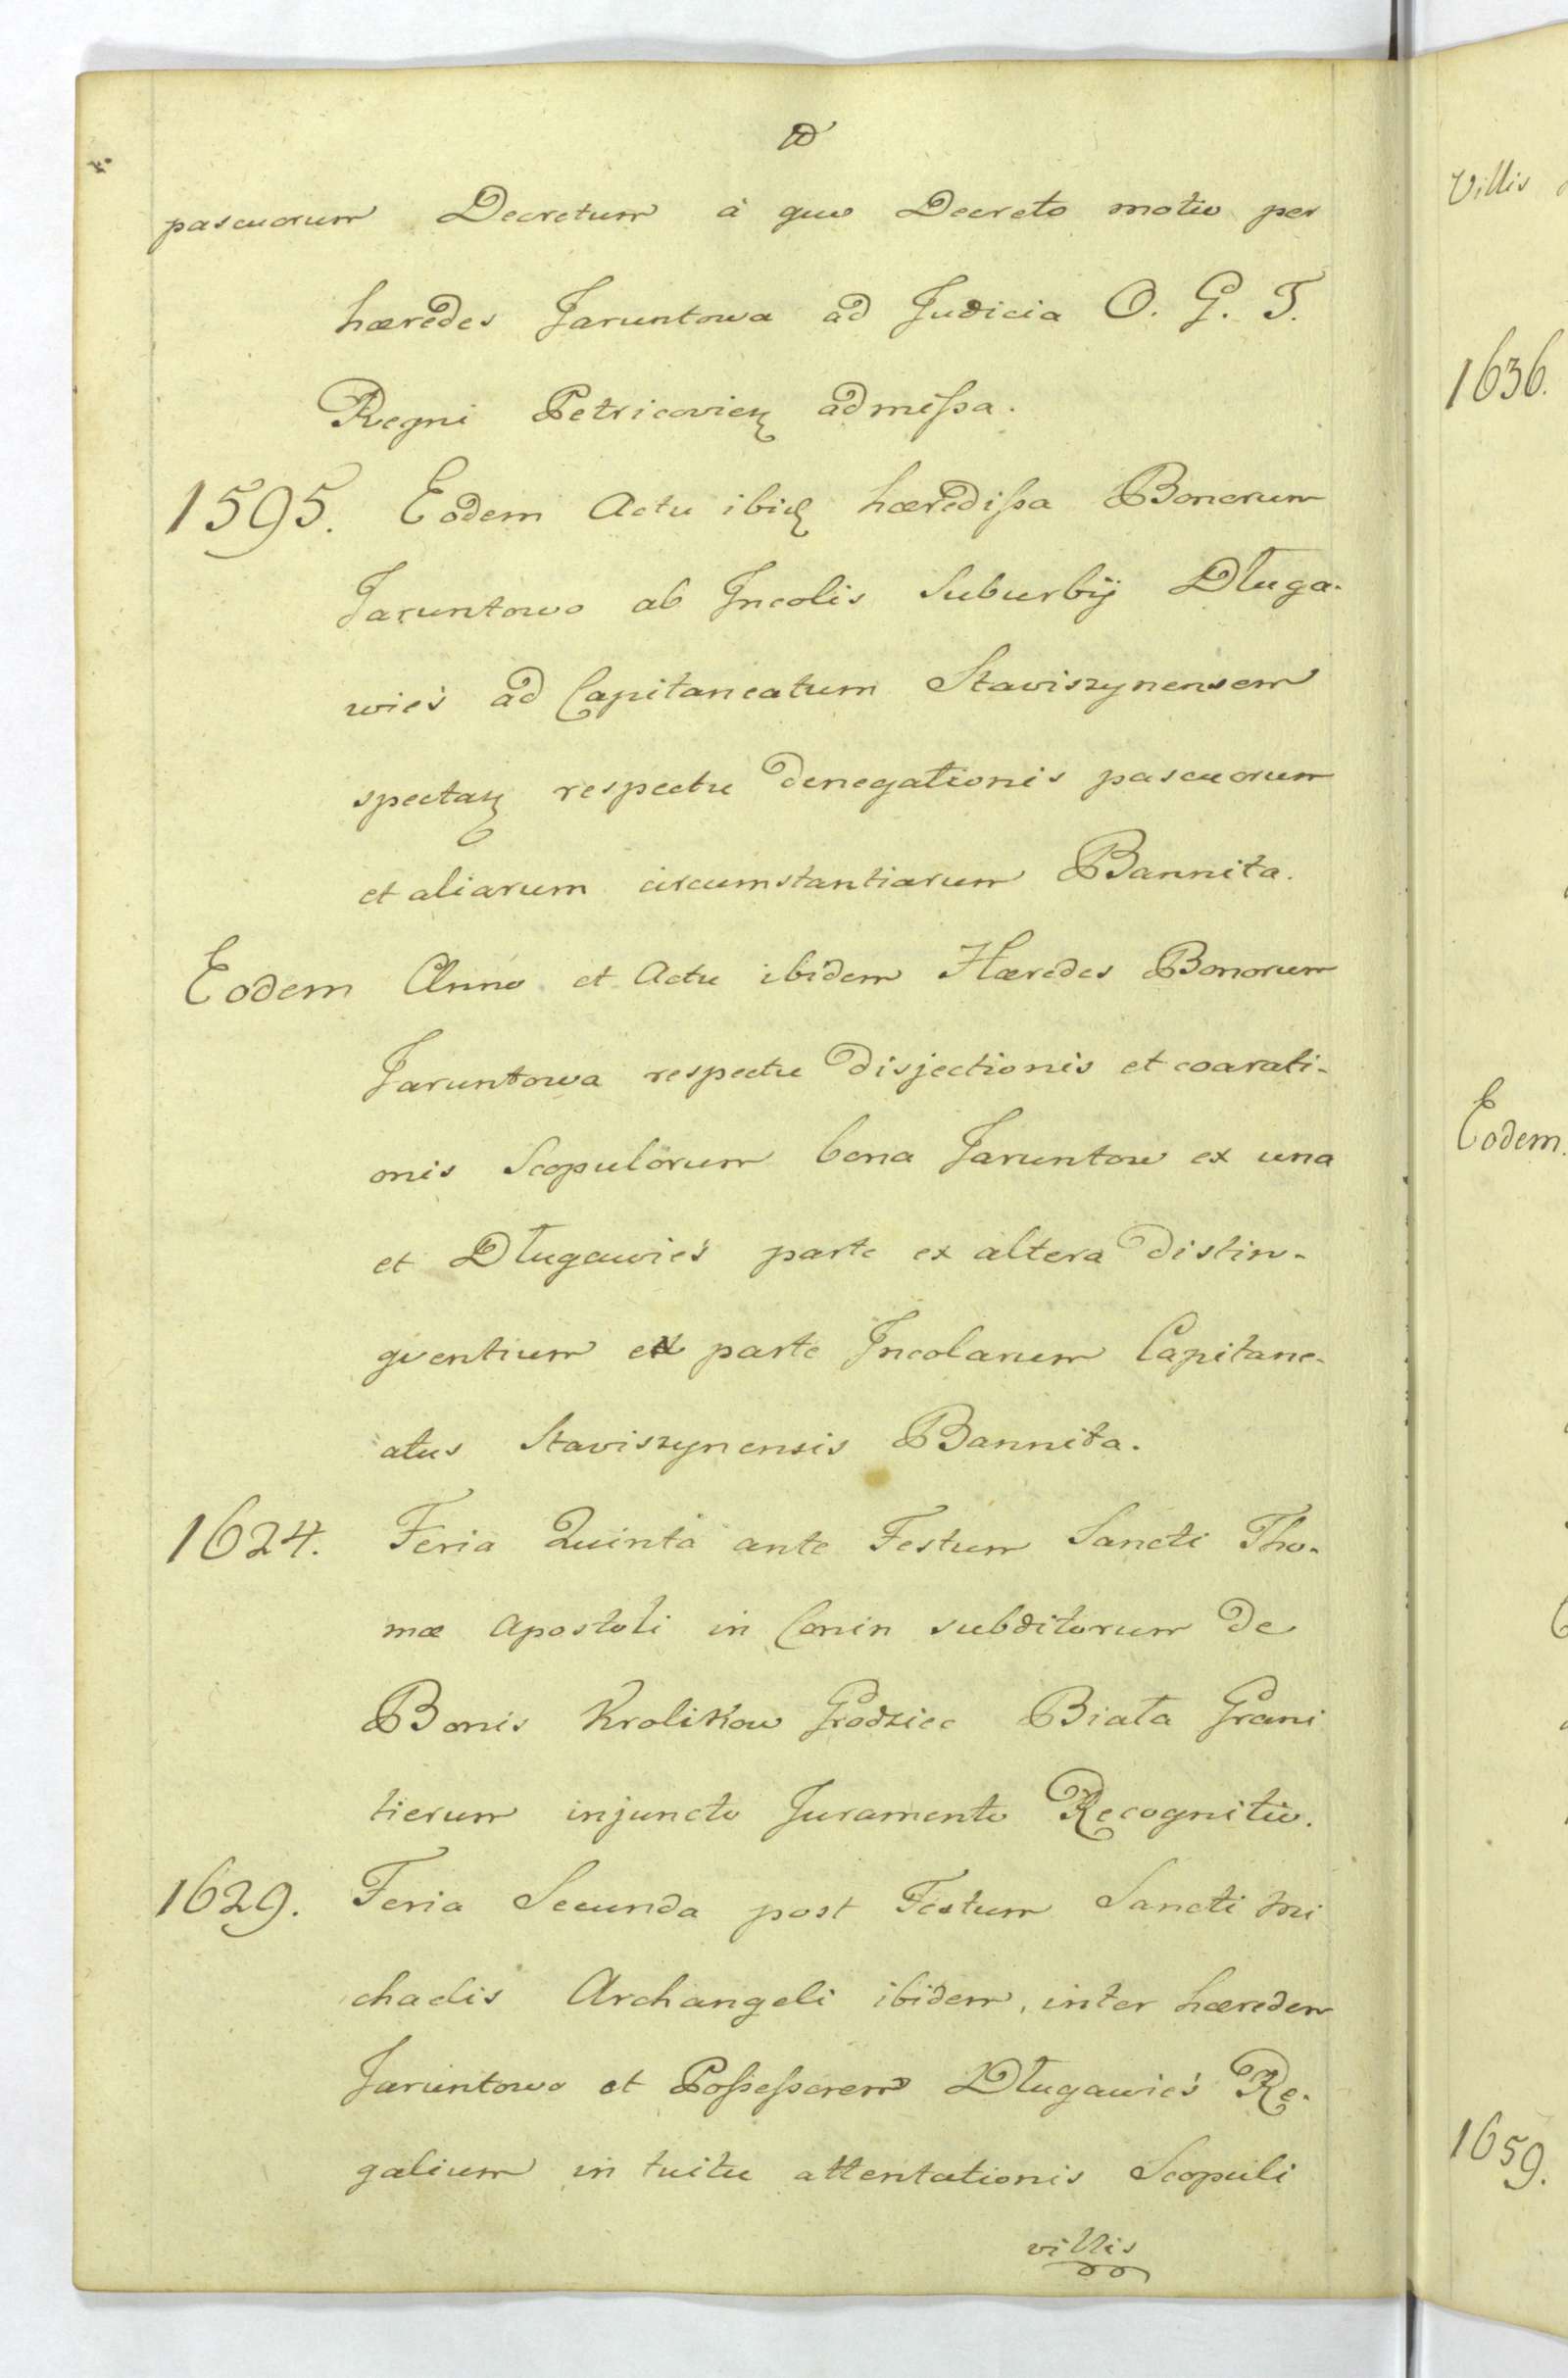 pascuorum Decretum à quo Decreto motio per
hæredes Jaruntowa ad Judicia O. G. T.
Regni Petricovien admissa.
1595. Eodem Actu ibid hæredissa Bonorum
Jaruntowo ab Incolis Suburbij Długa-
wieś ad Capitaneatum Staviszynensem
spectan respectu denegationis pascuorum
et aliarum circumstantiarum Bannita.
Eodem Anno et Actu ibidem Hæredes Bonorum
Jaruntowa respectu disjectionis et coarati-
onis Scopulorum bona Jaruntow ex una
et Długawieś parte ex altera distin-
gventium ex parte Incolarum Capitane-
atus Staviszynensis Bannita.
1624. Feria Quinta ante Festum Sancti Tho-
mæ Apostoli in Conin subditorum de
Bonis Krolikow Grodziec Biała Grani
tierum injuncto Juramento Recognitio.
1629. Feria Secunda post Festum Sancti Mi
chaelis Archangeli ibidem, inter hæredem
Jaruntowo et Possessorem Długawieś Re-
galium in tuitu attentationis Scopuli
villis
Villis
1636.
Eodem.
1659.